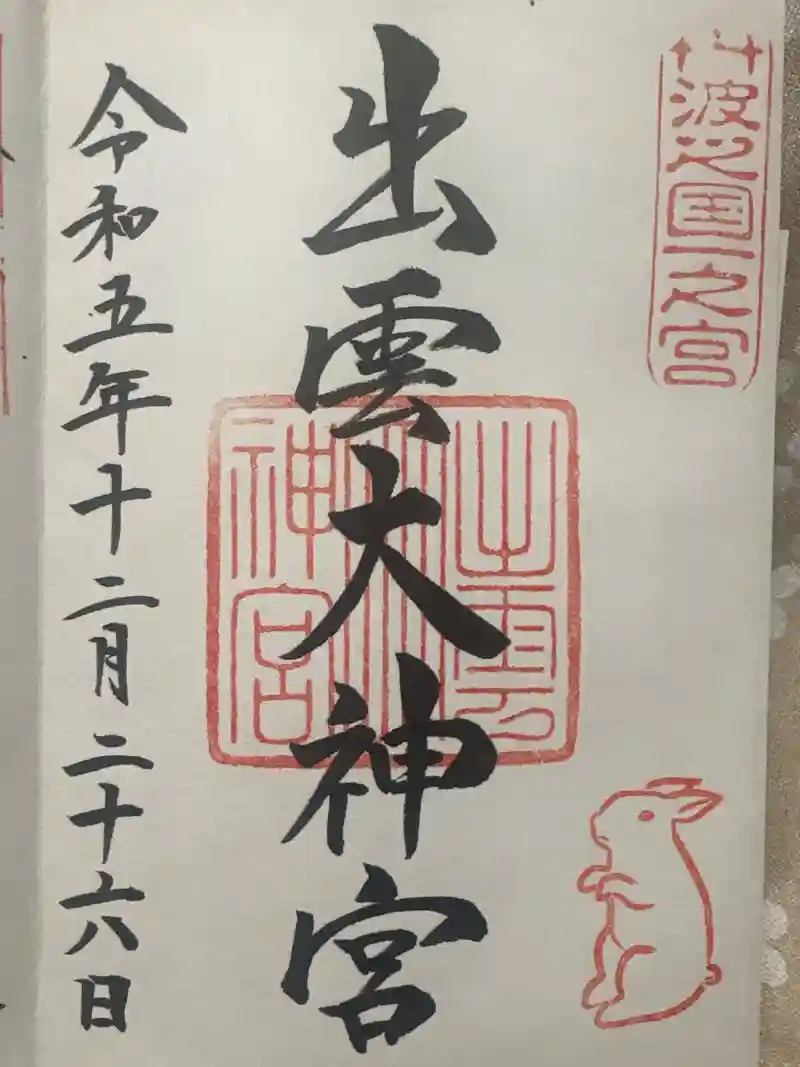 丹波之国一之宮
出雲大神宮
出雲大神宮
令和五年十二月二十六日